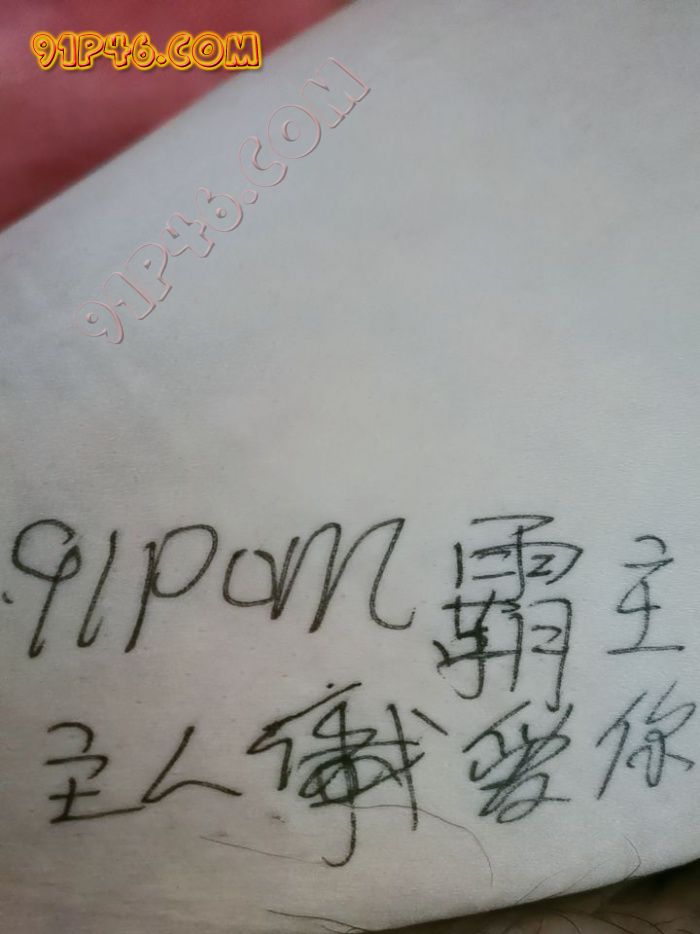 91P46.COM
91P46.COM
91Pom霸主
主人 我爱你